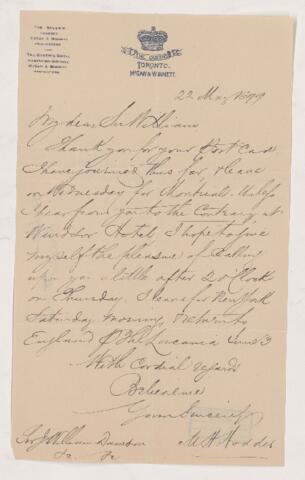 THE QUEEN'S
TORONTO.
McGAW & WINNETT.
22 May 1899
My dear Sir William
Thank you for your Post Card
I have received this far, leave
on Wednesday for Montreal. Unless
I hear from you to the Contrary at
Windsor Hotel I hope to give
myself the pleasure of Calling
upon you a little after 2 o'clock
on Thursday. I leave for New York
Saturday morning, return to
England p the Lucania June 3
With Cordial regards
Believe me
Yours Sincerely
Sir J William Dawson
M H Hodder